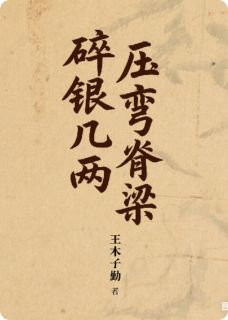 碎银几两
压弯脊梁
王木子勤 者